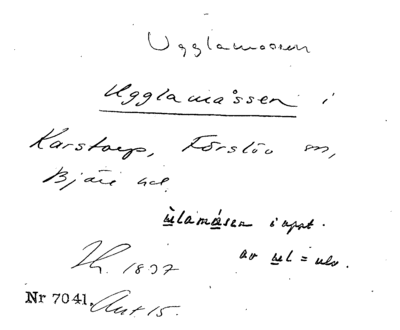 Ugglamossen
Ugglamåssen i
Karstorp, Förslöv sn,
Bjäre hd.
ùlamåsen i uppt.
av ul = ulv.
1837
Nr 7041. Ant 15.